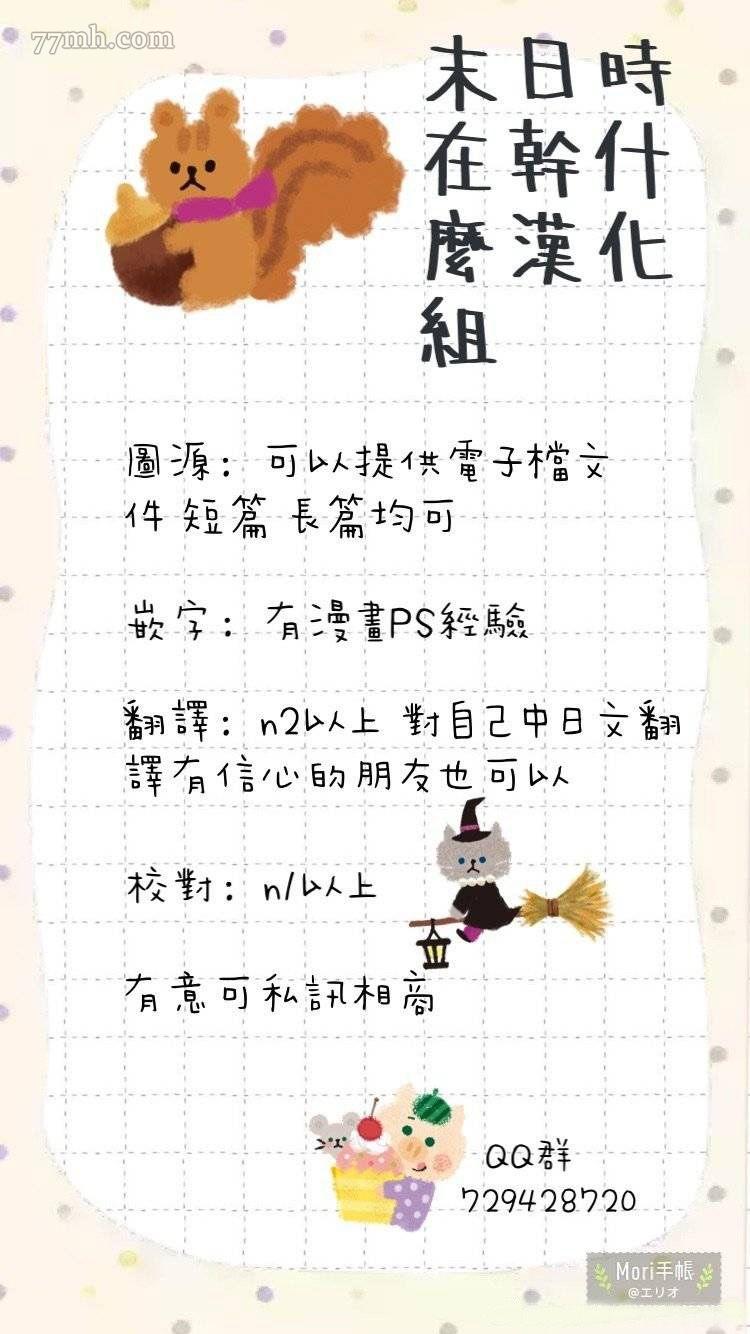 77mh.com
末日時
在幹什
麼漢化
組
圖源：可以提供電子檔文
件 短篇 長篇均可
嵌字：有漫畫PS經驗
翻譯：n2以上 對自己中日文翻
譯有信心的朋友也可以
校對：n1以上
有意可私訊相商
QQ群
729428720
Mori手帳
@エリオ